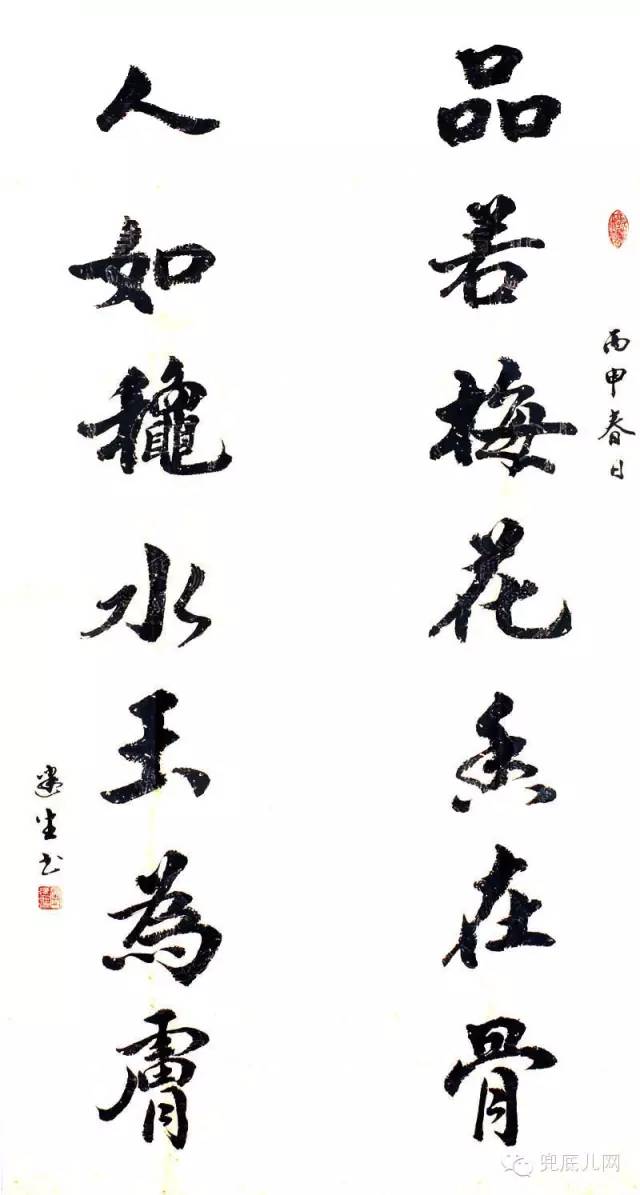 丙申春日
品若梅花香在骨
人如穐水玉為膚
生书
兜底儿网